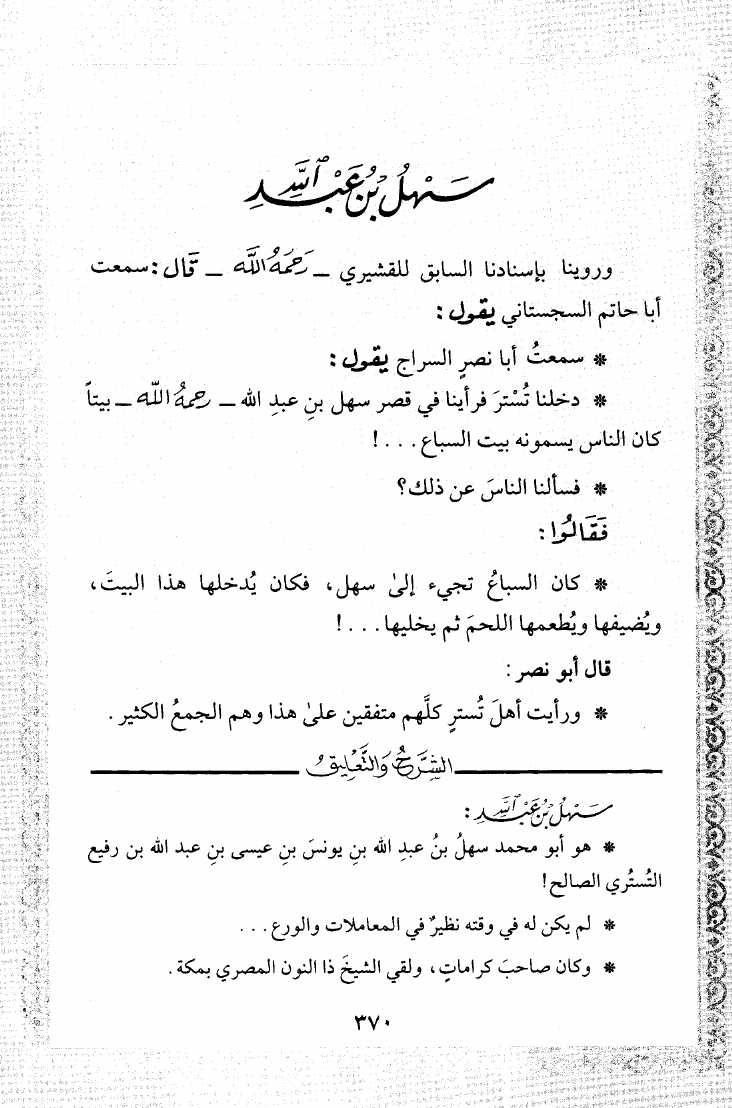 سَهْلُ بْنُ عَبْدِ ٱللَّهِ
وروينا بإسنادنا السابق للقشيري ــ رَحِمَهُ اللَّه ــ قَالَ: سمعت
أبا حاتم السجستاني يقول:
* سمعتُ أبا نصرٍ السراج يقول:
* دخلنا تُسْترَ فرأينا في قصر سهل بنِ عبدِ الله ــ رحمهُ اللَّه ــ بيتاً
كان الناس يسمونه بيت السباع...!
* فسألنا الناسَ عن ذلك؟
فَقَالُوا:
* كان السباعُ تجيء إلىٰ سهل، فكان يُدخلها هذا البيتَ،
ويُضيفها ويُطعمها اللحمَ ثم يخليها...!
قال أبو نصر:
* ورأيت أهلَ تُسترٍ كلَّهم متفقين علىٰ هذا وهم الجمعُ الكثير.
الشَّرْحُ وَالتَّعْلِيقُ
سَهْلُ بْنُ عَبْدِ ٱللَّهِ:
* هو أبو محمد سهلُ بنُ عبدِ الله بنِ يونسَ بنِ عيسى بنِ عبد الله بن رفيع
التُستُري الصالح!
* لم يكن له في وقته نظيرٌ في المعاملات والورع...
* وكان صاحبَ كراماتٍ، ولقي الشيخَ ذا النون المصري بمكة.
٣٧٠